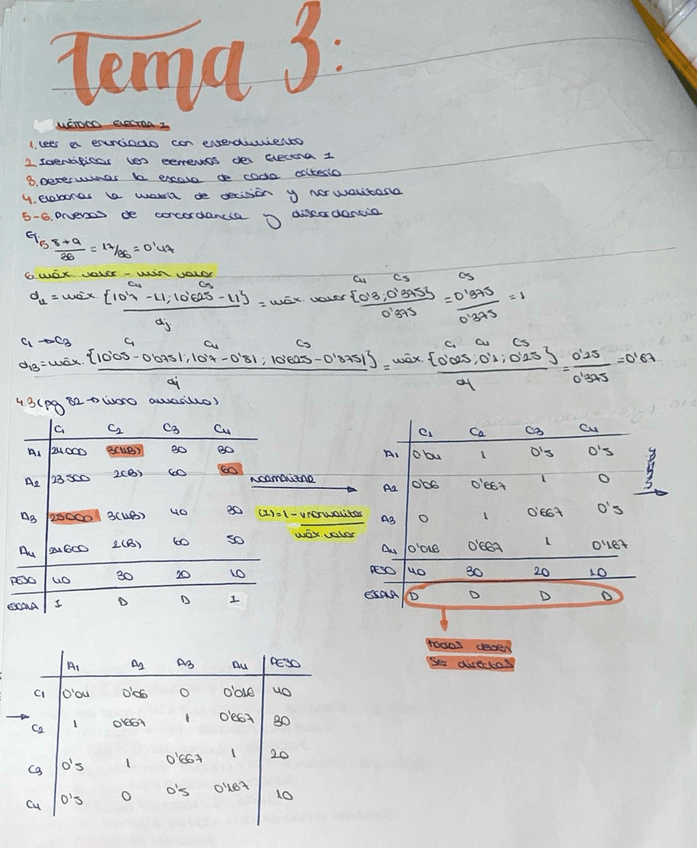 Tema 3:
MÉTODO ELECTRA 1
1. Leer el enunciado con entendimiento
2. Identificar los elementos del Electra 1
3. Determinar la escala de cada criterio
4. Elaborar la matriz de decisión y normalizarla
5-6. Pruebas de concordancia y discordancia
Ej:
5. 8+9/36 = 17/36 = 0'47
6. máx valor - min valor
C4 C3 C4 C3 C3
= máx. {10'7 - 1.1; 10'625 - 1.1} / dj = máx. valor {0'3; 0'375} / 0'375 = 0'375 / 0'375 = 1
C1 → C3 C1 C4 C3 C1 C4 C3
d13 = máx. {10'05 - 0'075|; |0'7 - 0'8|; |0'625 - 0'875|} / dj = máx. {0'025; 0'1; 0'25} / dj = 0'25 / 0'375 = 0'67
4.3 (pg 82 → libro amarillo)
C1 C2 C3 C4
A1 24000 3(MB) 30 30
A2 23500 2(B) 60 60
A3 25000 3(MB) 40 30
A4 24600 2(B) 60 50
PESO 40 30 20 10
ESCALA I D D I
normalizar
(I) = 1 - v.normalizar / máx valor
C1 C2 C3 C4
A1 0'04 1 0'5 0'5
A2 0'06 0'667 1 0
A3 0 1 0'667 0'5
A4 0'016 0'667 1 0'167
PESO 40 30 20 10
ESCALA D D D D
todos deben
ser directos
A1 A2 A3 A4 PESO
C1 0'04 0'06 0 0'016 40
C2 1 0'667 1 0'667 30
C3 0'5 1 0'667 1 20
C4 0'5 0 0'5 0'167 10